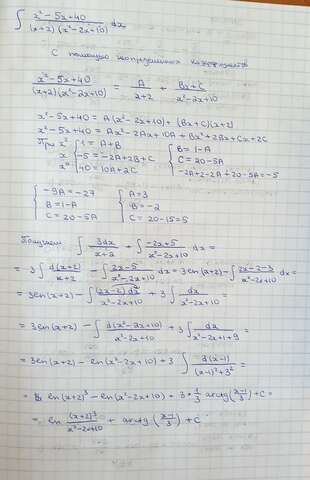 ∫ x²-5x+40 / (x+2)(x²-2x+10) dx
С помощью неопределенных коэффициентов
x²-5x+40 / (x+2)(x²-2x+10) = A / 2+2 + Bx+C / x²-2x+10
x²-5x+40 = A(x²-2x+10) + (Bx+C)(x+2)
x²-5x+40 = Ax²-2Ax+10A + Bx²+2Bx+Cx+2C
При x² { 1 = A+B { B=1-A
x { -5 = -2A+2B+C { C=20-5A
x⁰ { 40 = 10A+2C { -2A+2-2A+20-5A=-5
{ -9A=-27 { A=3
{ B=1-A { B=-2
{ C=20-5A { C=20-15=5
Получаем ∫ 3dx / x+2 + ∫ -2x+5 / x²-2x+10 dx =
= 3∫ d(x+2) / x+2 - ∫ 2x-5 / x²-2x+10 dx = 3ln(x+2) - ∫ 2x-2-3 / x²-2x+10 dx =
= 3ln(x+2) - ∫ (2x-2)dx / x²-2x+10 + 3∫ dx / x²-2x+10 =
= 3ln(x+2) - ∫ d(x²-2x+10) / x²-2x+10 + 3∫ dx / x²-2x+1+9 =
= 3ln(x+2) - ln(x²-2x+10) + 3∫ d(x-1) / (x-1)²+3² =
= ln(x+2)³ - ln(x²-2x+10) + 3·1/3 arctg(x-1 / 3) + C =
= ln (x+2)³ / x²-2x+10 + arctg(x-1 / 3) + C